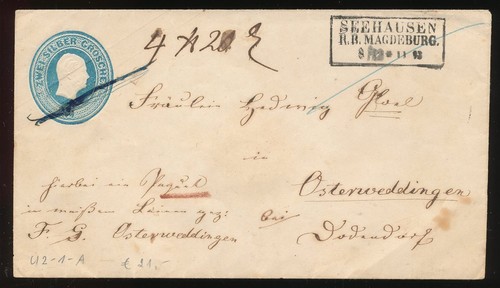 ZWEI SILBER-GROSCHEN
4 ℔ 20
SEEHAUSEN
R.B. MAGDEBURG.
8/12 * 11
Fräulein Hedwig Gloel
in
Osterweddingen
bei
Dodendorf
hierbei ein Paquet
in weißen Leinen gez:
F. G. Osterweddingen
U2-1-A
€ 21,-